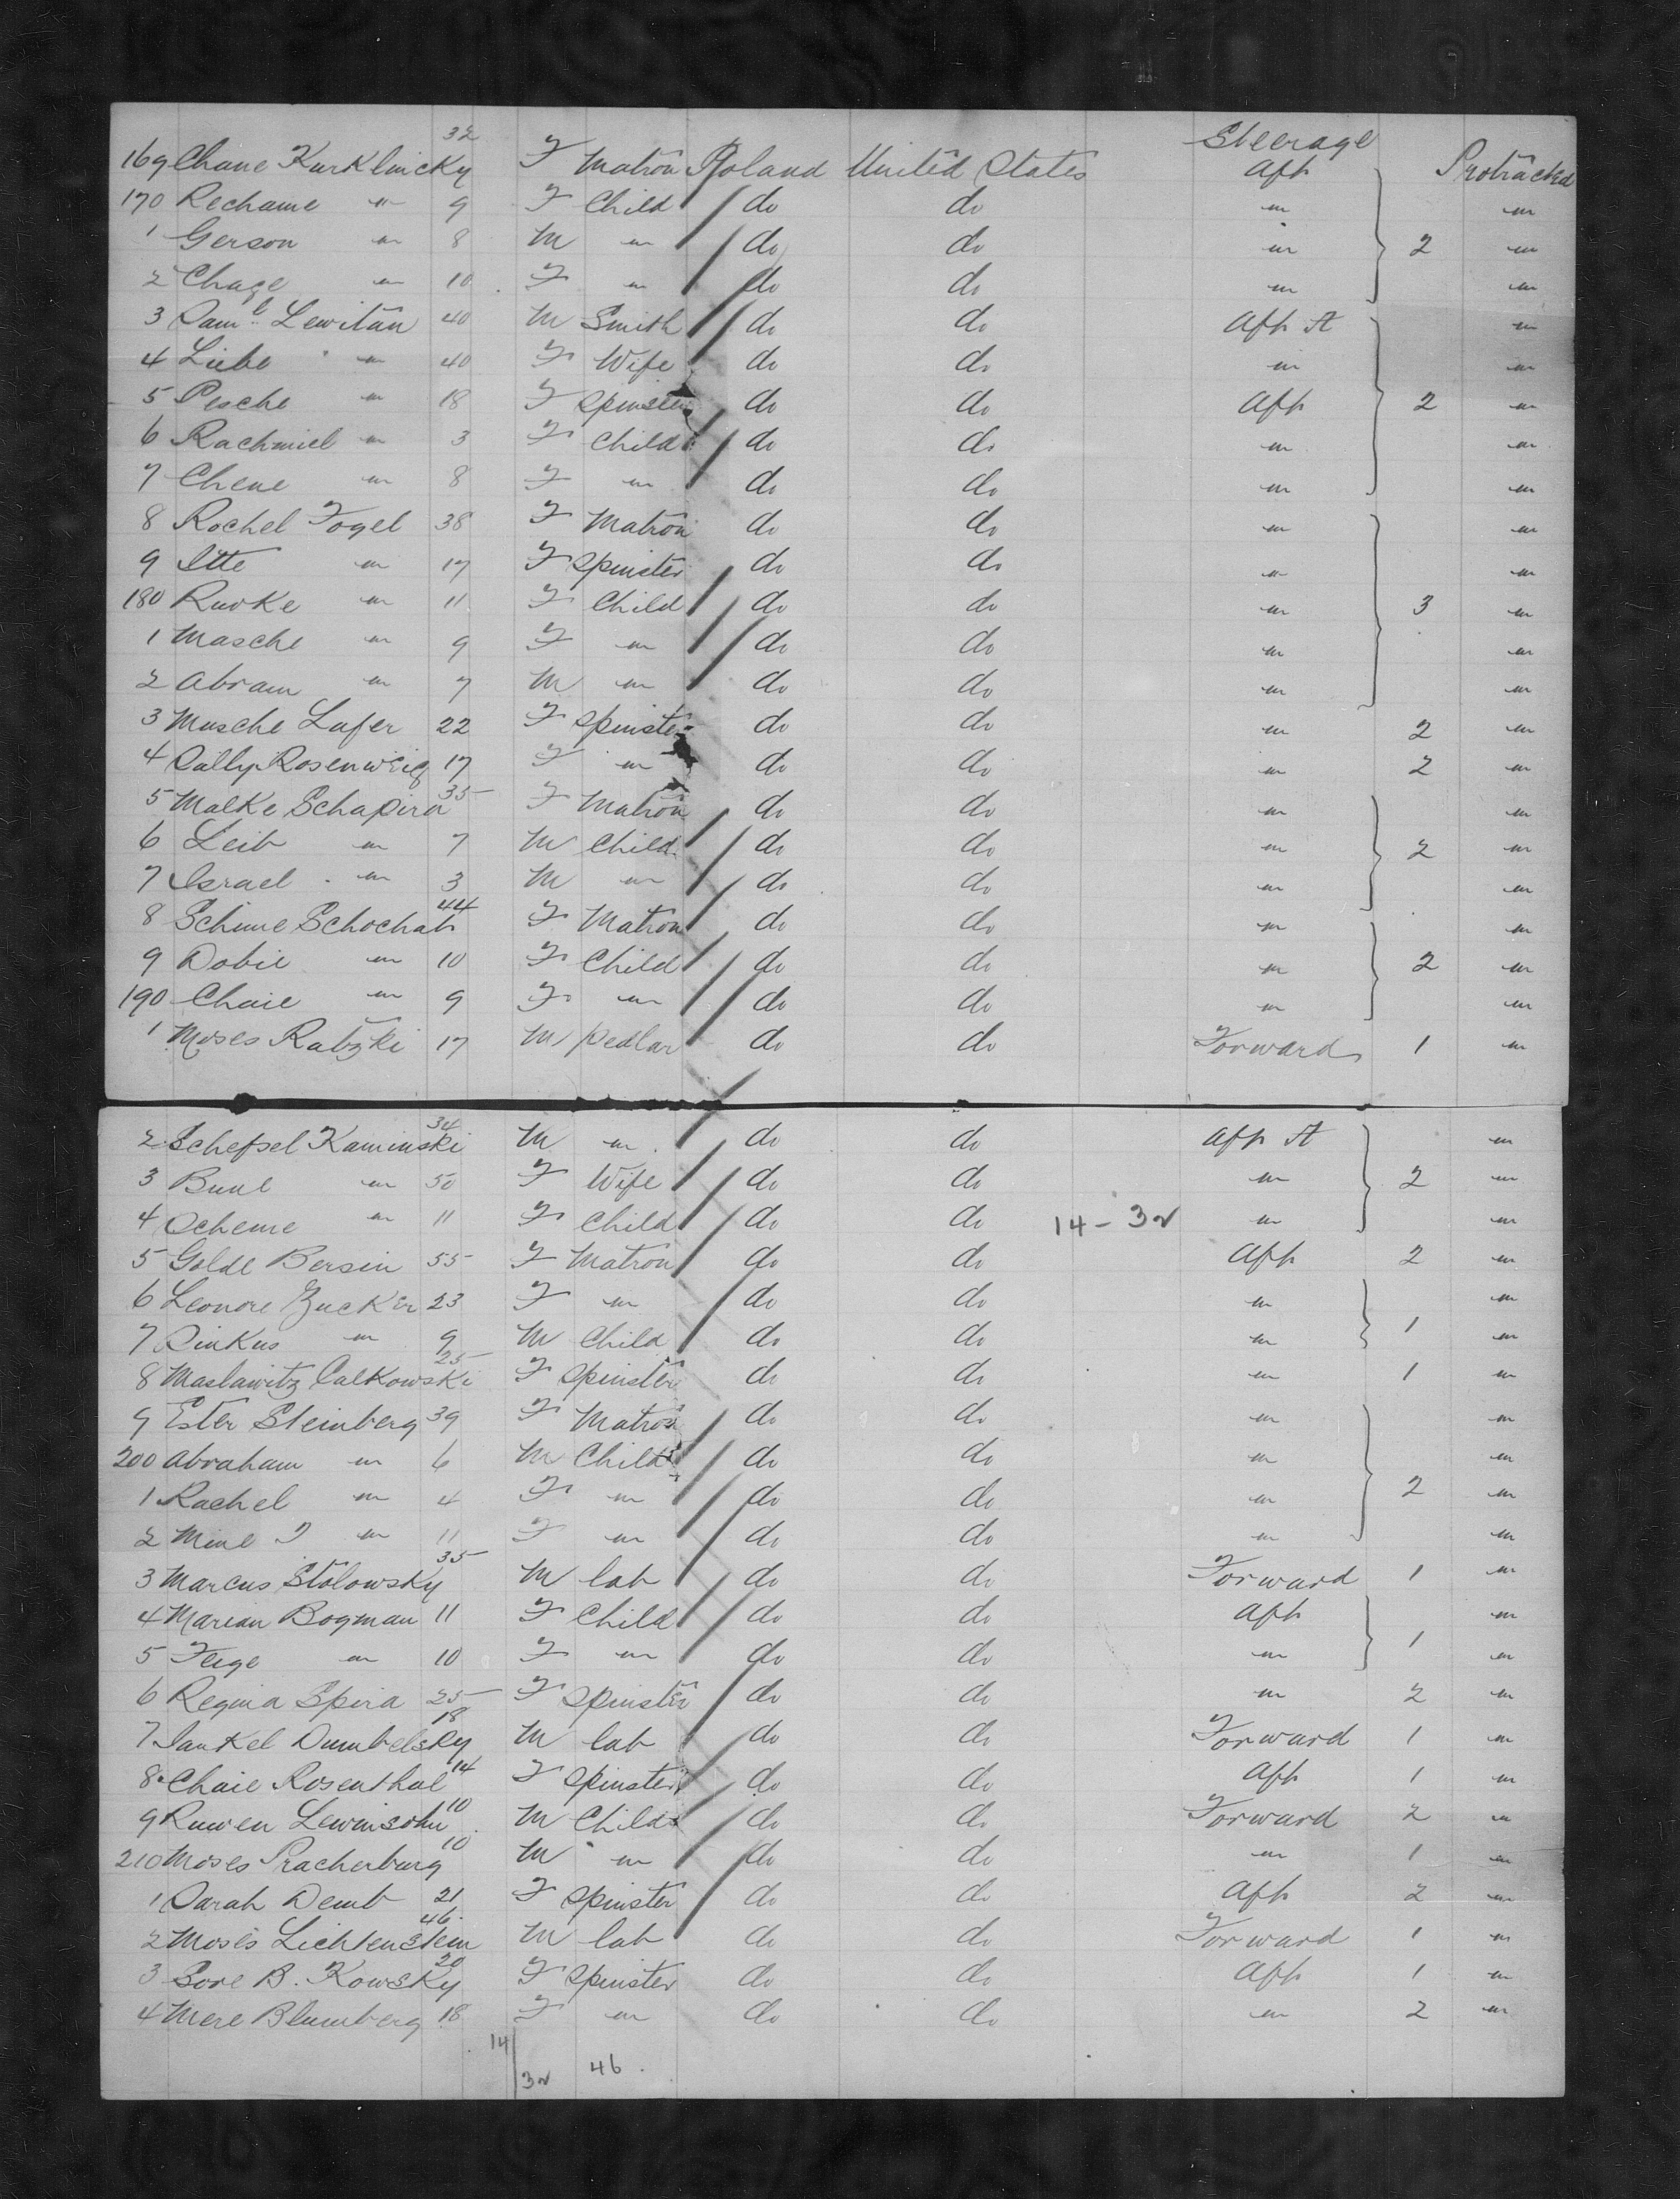 Steerage
169 Chane Kurklincky 32 F Matron Poland United States Aft Protracted
170 Rechame " 9 F Child do do " "
1 Gerson " 8 M " do do " 2 "
2 Chage " 10 F " do do " "
3 Saml. Lewitan 40 M Smith do do Aft A "
4 Liebe " 40 F Wife do do " "
5 Pesche " 18 F Spinster do do Aft 2 "
6 Rachmiel " 3 F Child do do " "
7 Chene " 8 F " do do " "
8 Rochel Fogel 38 F Matron do do " "
9 Itte " 17 F Spinster do do " "
180 Rivke " 11 F Child do do " 3 "
1 Masche " 9 F " do do " "
2 Abram " 7 M " do do " "
3 Musche Lafer 22 F Spinster do do " 2 "
4 Sally Rosenweig 17 F " do do " 2 "
5 Malke Schapira 35 F Matron do do " "
6 Leib " 7 M Child do do " 2 "
7 Israel " 3 M " do do " "
8 Schime Schochat 44 F Matron do do " "
9 Dobie " 10 F Child do do " 2 "
190 Chaie " 9 F " do do " "
1 Moses Ratzki 17 M Pedlar do do Forward 1 "
2 Schefsel Kaminski 34 M " do do Aft A "
3 Bune " 50 F Wife do do " 2 "
4 Scheme " 11 F Child do do 14-32 " "
5 Golde Bersin 55 F Matron do do Aft 2 "
6 Leonore Zucker 23 F " do do " "
7 Pinkus " 9 M Child do do " 1 "
8 Maslawitz Calkowski 25 F Spinster do do " 1 "
9 Ester Steinberg 39 F Matron do do " "
200 Abraham " 6 M Child do do " "
1 Rachel " 4 F " do do " 2 "
2 Mine " 11 F " do do " "
3 Marcus Stolowsky 35 M lab do do Forward 1 "
4 Marian Bogman 11 F Child do do Aft "
5 Feige " 10 F " do do " 1 "
6 Regina Spira 25 F Spinster do do " 2 "
7 Jankel Dumbelsky 18 M lab do do Forward 1 "
8 Chaie Rosenthal 14 F Spinster do do Aft 1 "
9 Ruwen Lewinsohn 10 M Child do do Forward 2 "
210 Moses Pracherburg 10 M " do do " 1 "
1 Sarah Demb 21 F Spinster do do Aft 2 "
2 Moses Lichtenstein 46 M lab do do Forward 1 "
3 Sore B. Kowsky 20 F Spinster do do Aft 1 "
4 Mere Blumberg 18 F " do do " 2 "
14 32 46